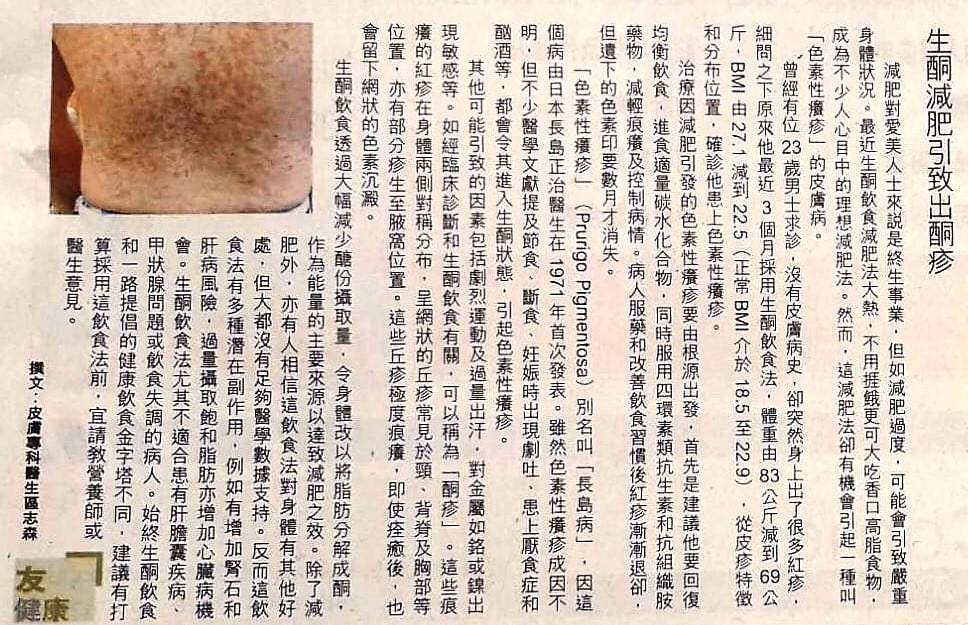 生酮減肥引致出酮疹
減肥對愛美人士來說是終生事業，但如減肥過度，可能會引致嚴重
身體狀況。最近生酮飲食減肥法大熱，不用捱餓更可大吃香口高脂食物，
成為不少人心目中的理想減肥法。然而，這減肥法卻有機會引起一種叫
「色素性癢疹」的皮膚病。
曾經有位 23 歲男士求診，沒有皮膚病史，卻突然身上出了很多紅疹，
細問之下原來他最近 3 個月採用生酮飲食法，體重由 83 公斤減到 69 公
斤，BMI 由 27.1 減到 22.5（正常 BMI 介於 18.5 至 22.9），從皮疹特徵
和分布位置，確診他患上色素性癢疹。
治療因減肥引發的色素性癢疹要由根源出發，首先是建議他要回復
均衡飲食，進食適量碳水化合物，同時服用四環素類抗生素和抗組織胺
藥物，減輕痕癢及控制病情。病人服藥和改善飲食習慣後紅疹漸漸退卻，
但遺下的色素印要數月才消失。
「色素性癢疹」（Prurigo Pigmentosa）別名叫「長島病」，因這
個病由日本長島正治醫生在 1971 年首次發表。雖然色素性癢疹成因不
明，但不少醫學文獻提及節食、斷食、妊娠時出現劇吐、患上厭食症和
酗酒等，都會令其進入生酮狀態，引起色素性癢疹。
其他可能引致的因素包括劇烈運動及過量出汗，對金屬如鉻或鎳出
現敏感等。如經臨床診斷和生酮飲食有關，可以稱為「酮疹」。這些痕
癢的紅疹在身體兩側對稱分布，呈網狀的丘疹常見於頸、背脊及胸部等
位置，亦有部分疹生至腋窩位置。這些丘疹極度痕癢，即使痊癒後，也
會留下網狀的色素沉澱。
生酮飲食透過大幅減少醣份攝取量，令身體改以將脂肪分解成酮，
作為能量的主要來源以達致減肥之效。除了減
肥外，亦有人相信這飲食法對身體有其他好
處，但大都沒有足夠醫學數據支持。反而這飲
食法有多種潛在副作用，例如有增加腎石和
肝病風險，過量攝取飽和脂肪亦增加心臟病機
會。生酮飲食法尤其不適合患有肝膽囊疾病、
甲狀腺問題或飲食失調的病人。始終生酮飲食
和一路提倡的健康飲食金字塔不同，建議有打
算採用這飲食法前，宜請教營養師或
醫生意見。
撰文：皮膚專科醫生區志森
友
健康